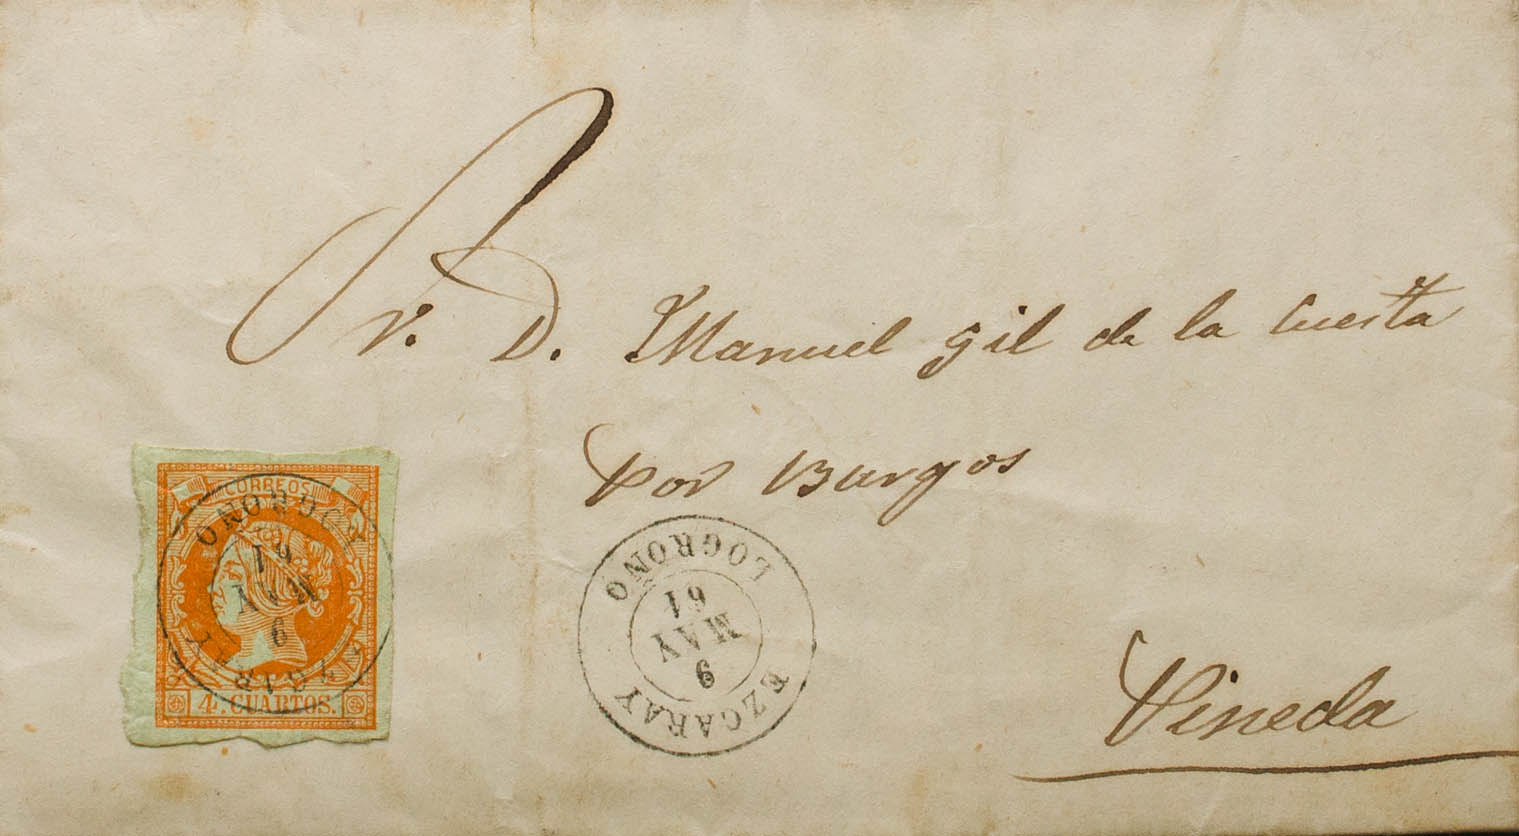 Sr. D. Manuel Gil de la Cuesta
por Burgos
Pineda
CORREOS
4. CUARTOS.
EZCARAY
9
MAY
61
LOGROÑO
EZCARAY
9
MAY
61
LOGROÑO